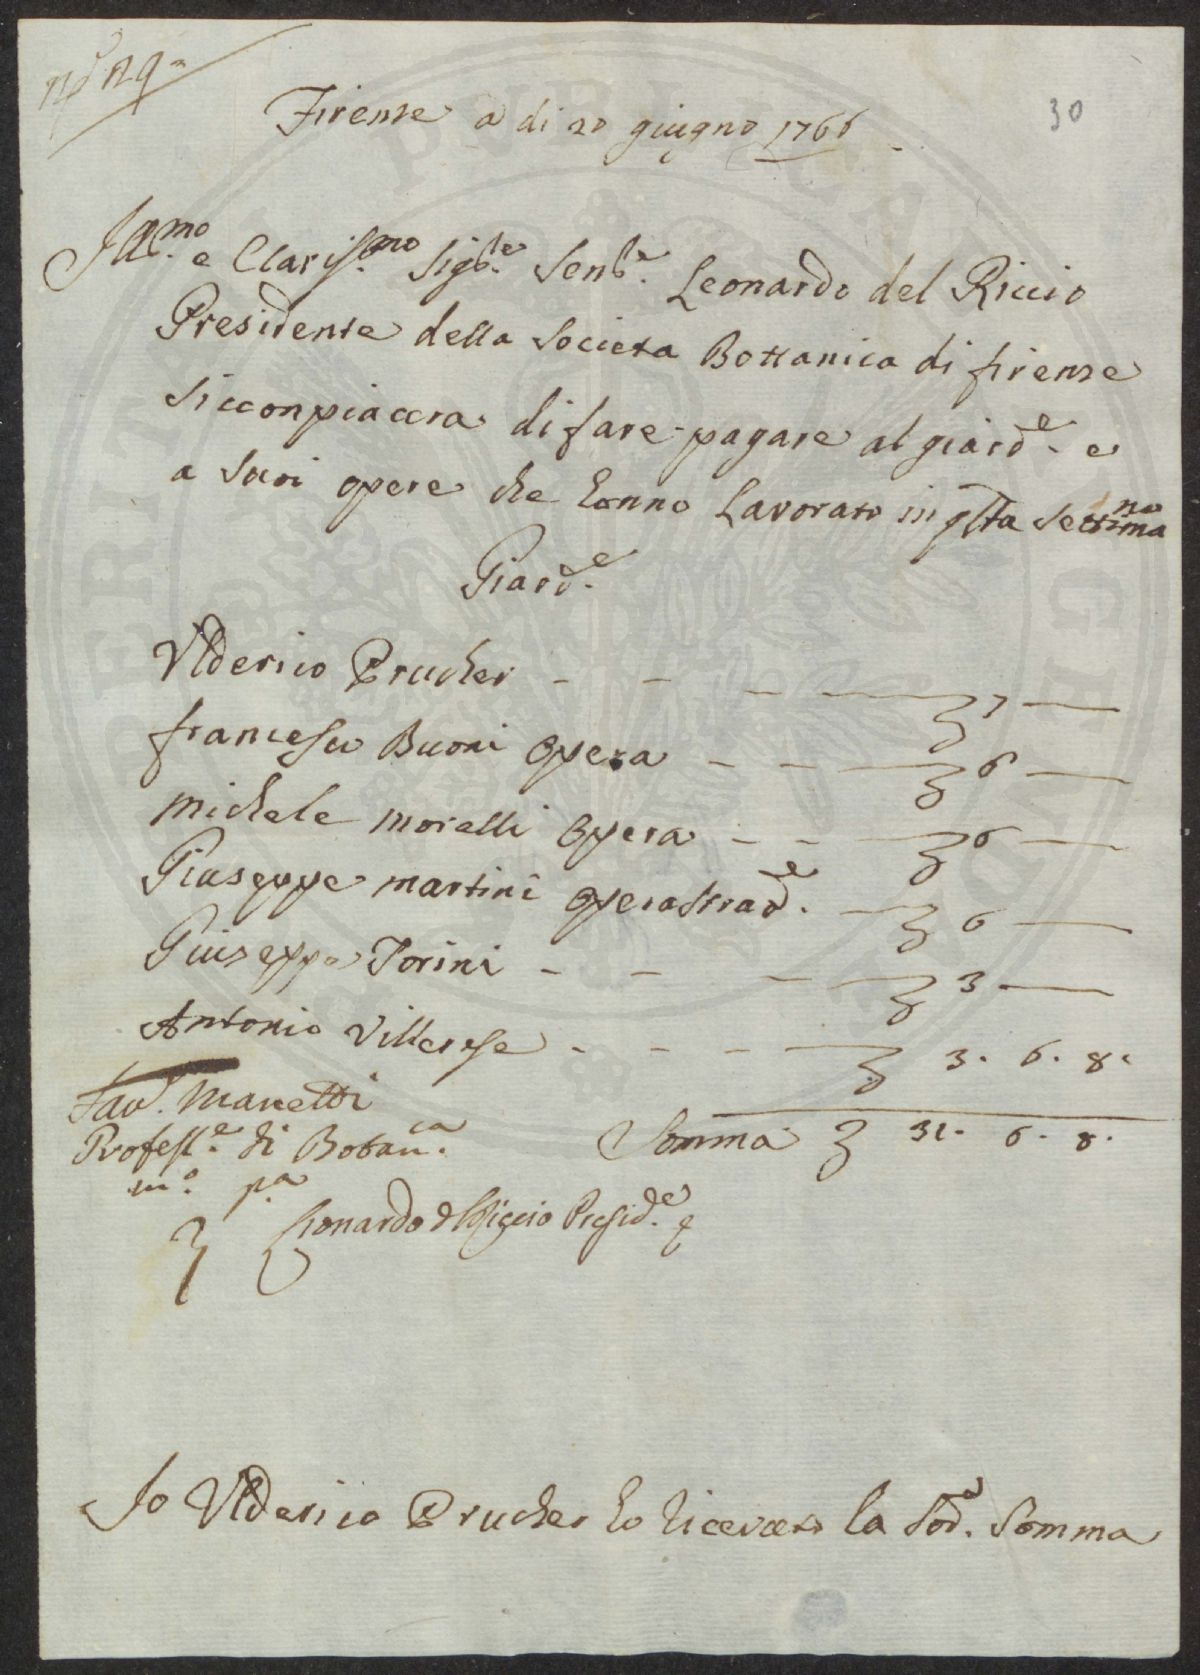 nº 29=
30
Firenze a di 20 giugno 1766
Ill.mo e Clariss.mo Sig.re Sen.re Leonardo del Riccio
Presidente della Societa Bottanica di firenze
si cconpiacera di fare pagare al giard.e e
a suoi opere che hanno Lavorato in qsta settimna
Giard.e
Ulderico Prucher - - - 7 —
francescho Buoni opera - - 6 —
michele morelli opera - - 6 —
Giuseppe martini opera strad.e 6 —
Guiseppe Torini - - - 3 —
Antonio Villerese - - - 3. 6. 8.
Sav. Manetti
Profess.e di Botan.ca
m.o p.a
Somma 31. 6. 8.
Lionardo d Riccio Presid.e
Io Ulderico Prucher ho ricevuto la sod.a Somma